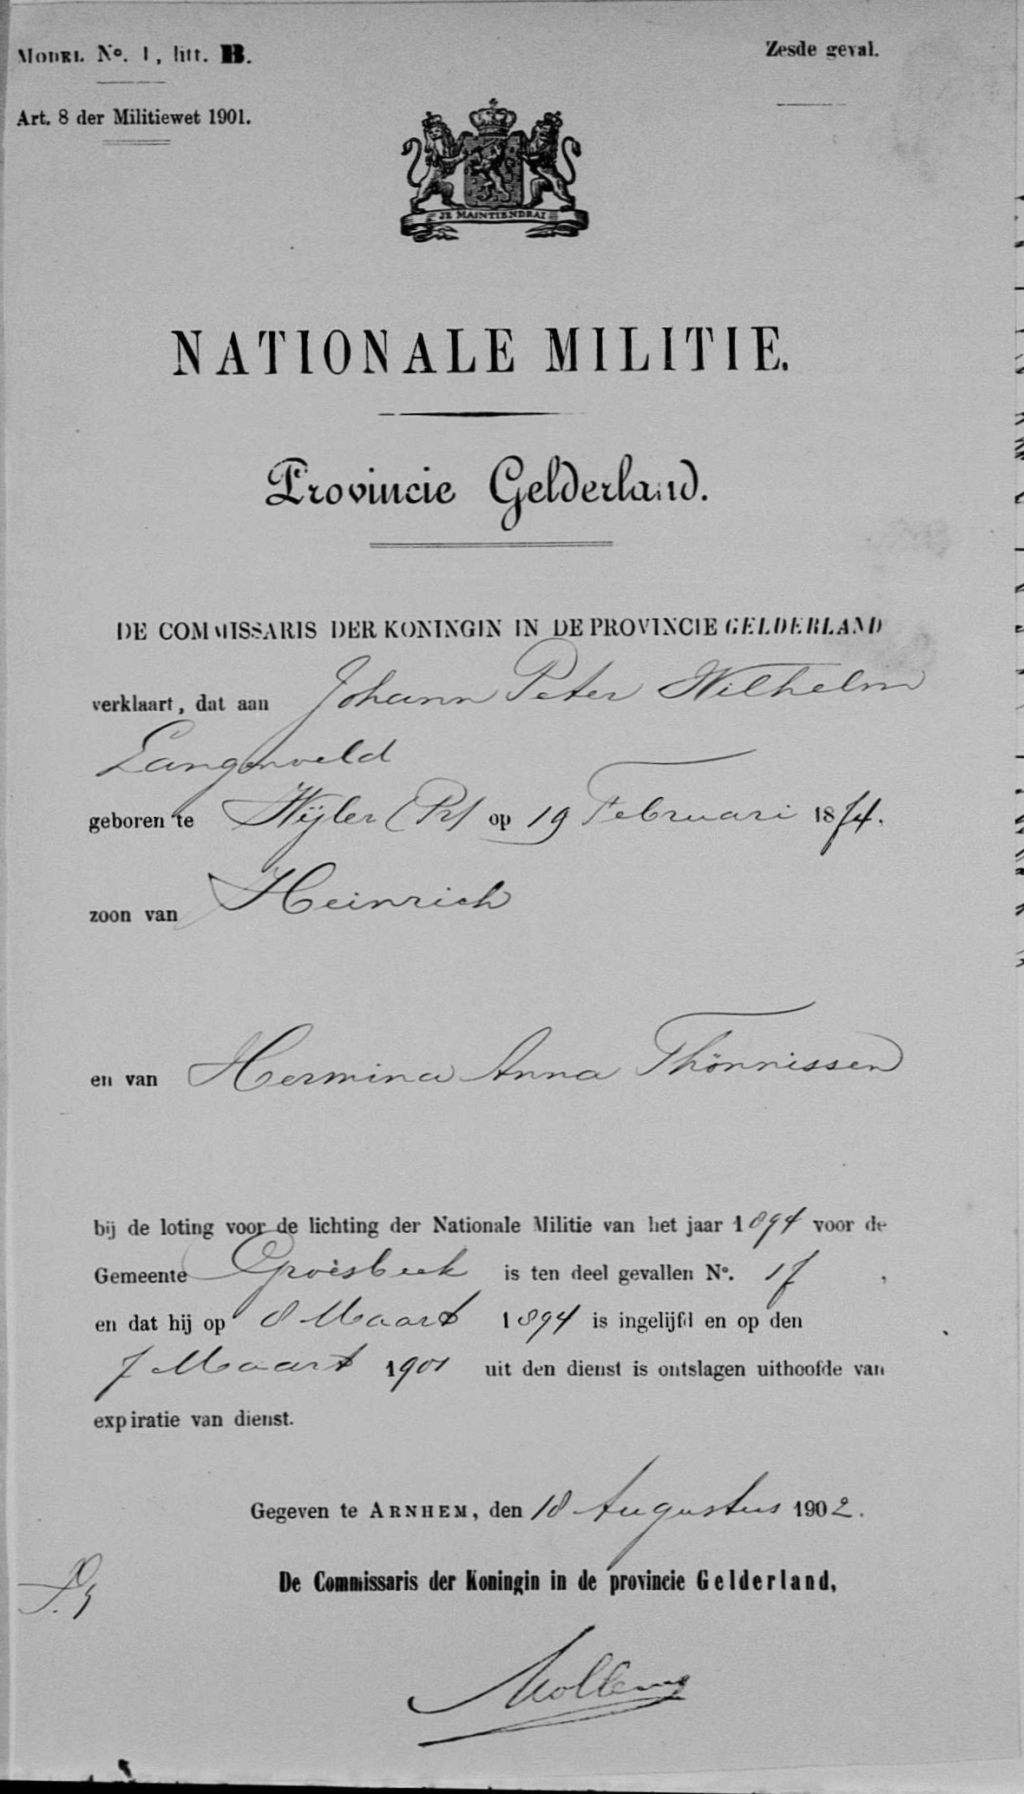 MODEL No. 1, litt. B.
Zesde geval.
Art. 8 der Militiewet 1901.
JE MAINTIENDRAI
NATIONALE MILITIE.
Provincie Gelderland.
DE COMMISSARIS DER KONINGIN IN DE PROVINCIE GELDERLAND
verklaart, dat aan Johann Peter Wilhelm
Langenveld
geboren te Wijler (Pr) op 19 Februari 1874.
zoon van Heinrich
en van Hermina Anna Thönnissen
bij de loting voor de lichting der Nationale Militie van het jaar 1894 voor de
Gemeente Groesbeek is ten deel gevallen No. 17,
en dat hij op 8 Maart 1894 is ingelijfd en op den
7 Maart 1901 uit den dienst is ontslagen uithoofde van
expiratie van dienst.
Gegeven te ARNHEM, den 18 Augustus 1902.
De Commissaris der Koningin in de provincie Gelderland,